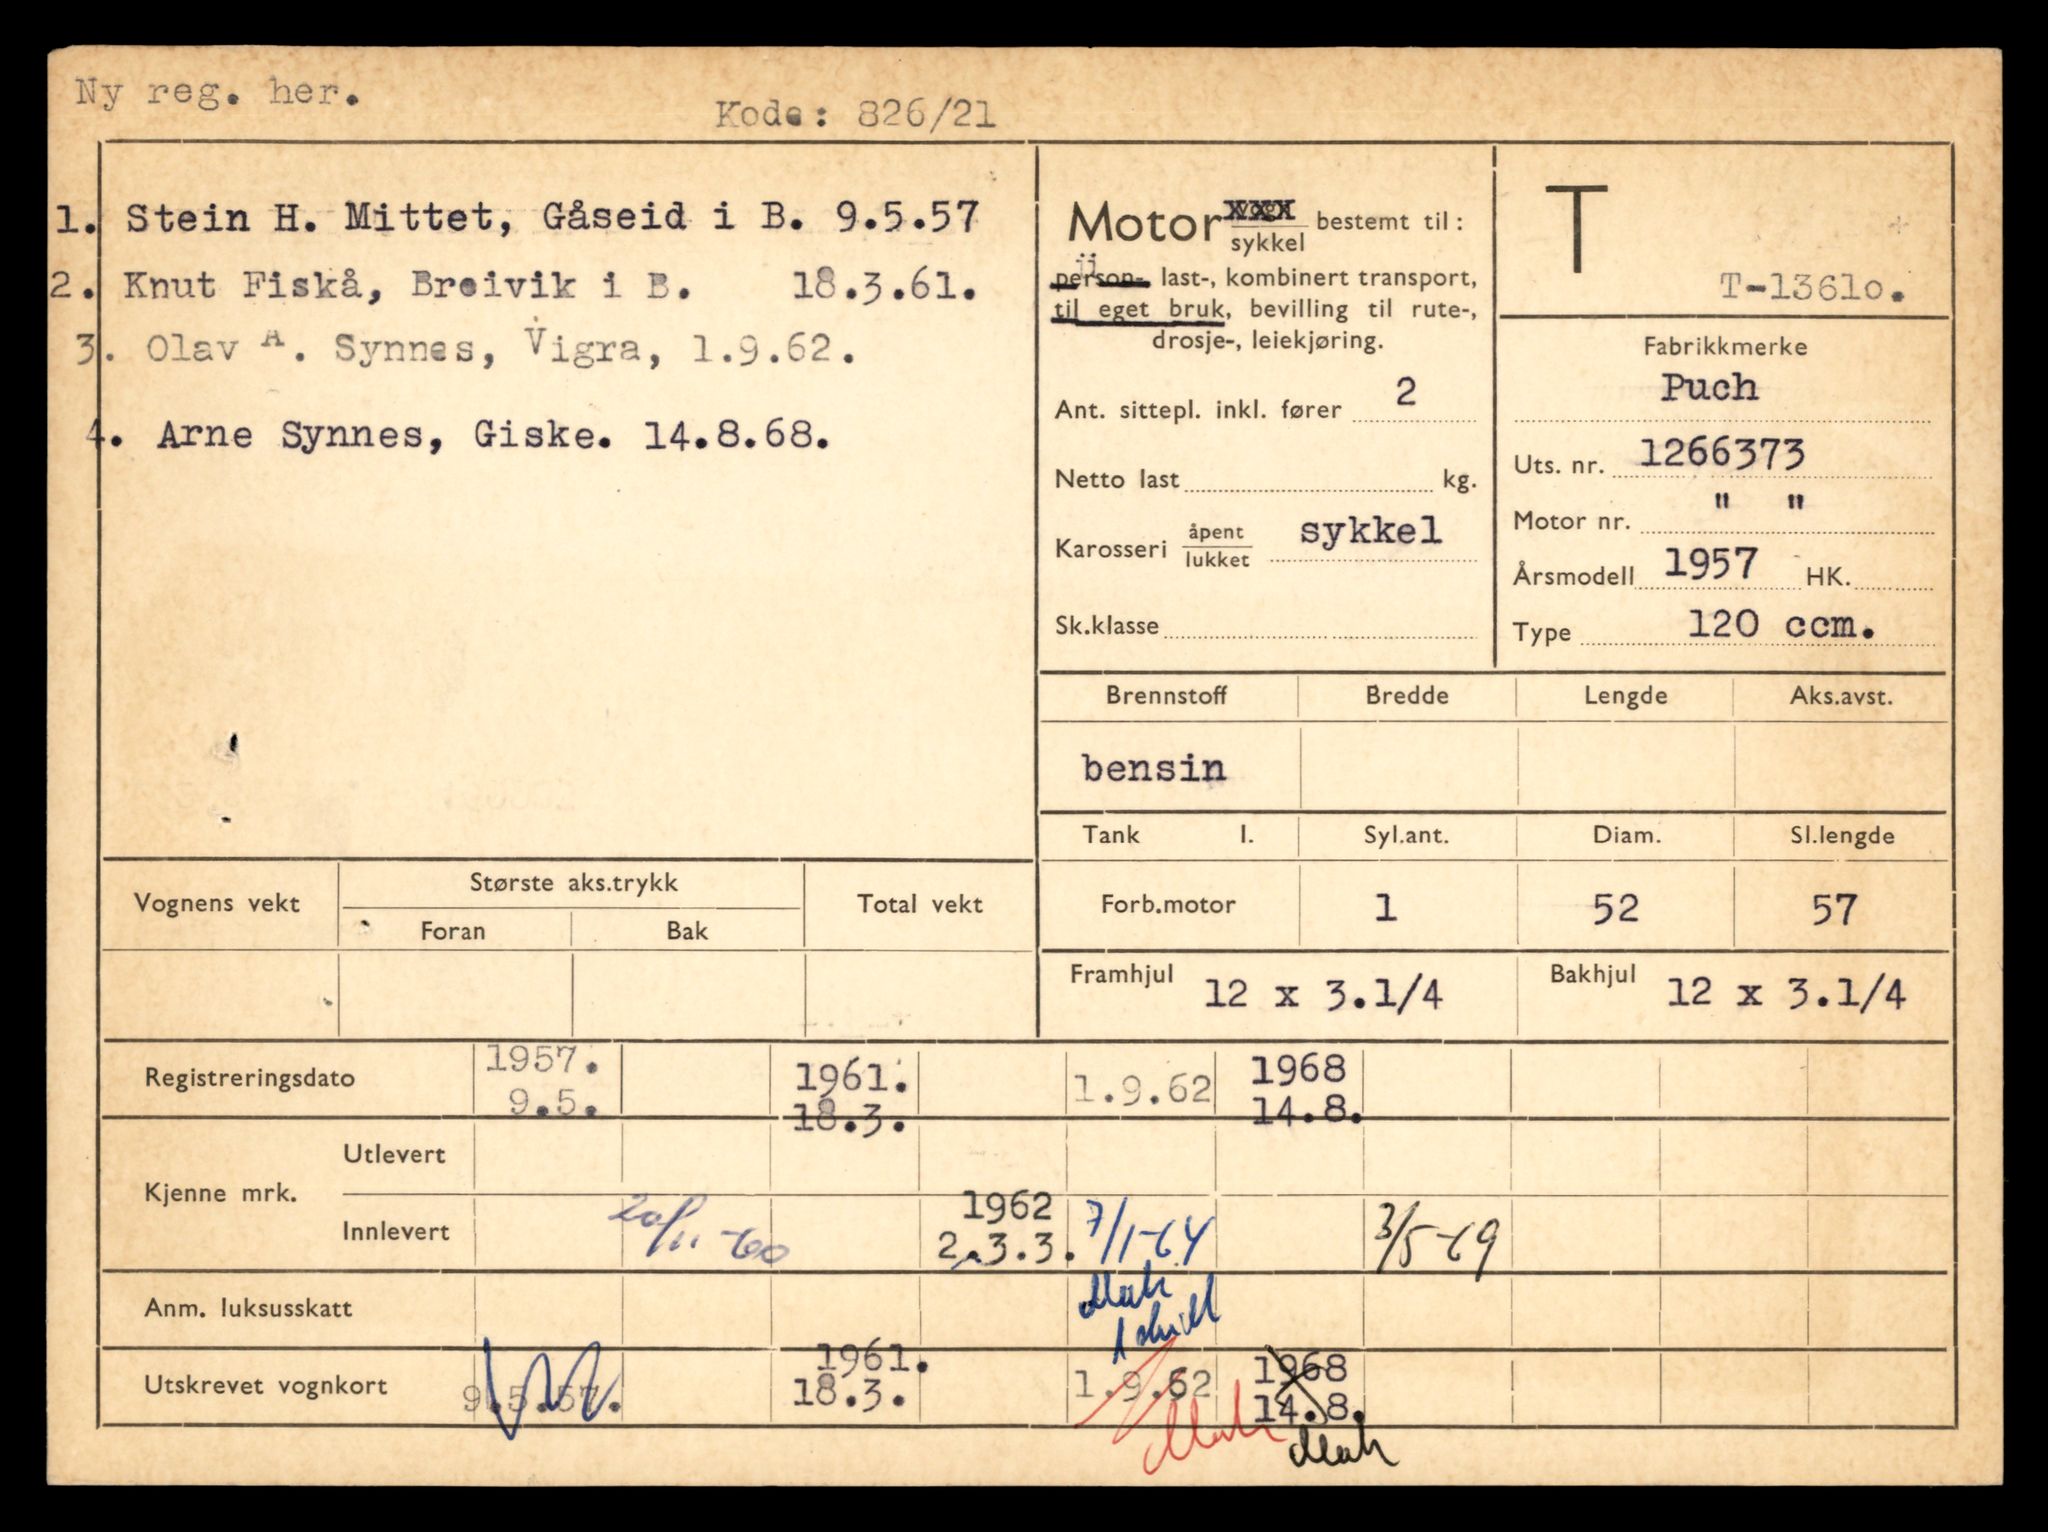 Ny reg. her.
Kode: 826/21
1. Stein H. Mittet, Gåseid i B. 9.5.57
2. Knut Fiskå, Breivik i B. 18.3.61.
3. Olav A. Synnes, Vigra, 1.9.62.
4. Arne Synnes, Giske. 14.8.68.
Motor vogn/sykkel bestemt til:
person-, last-, kombinert transport,
til eget bruk, bevilling til rute-,
drosje-, leiekjøring.
Ant. sittepl. inkl. fører 2
Netto last kg.
Karosseri åpent/lukket sykkel
Sk.klasse
T
T-13610.
Fabrikkmerke
Puch
Uts. nr. 1266373
Motor nr. " "
Årsmodell 1957 HK.
Type 120 ccm.
Brennstoff Bredde Lengde Aks.avst.
bensin
Tank l. Syl.ant. Diam. Sl.lengde
Forb.motor 1 52 57
Framhjul 12 x 3.1/4 Bakhjul 12 x 3.1/4
Vognens vekt Største aks.trykk Total vekt
Foran Bak
Registreringsdato 1957. 9.5. 1961. 18.3. 1.9.62 1968 14.8.
Kjenne mrk. Utlevert
Innlevert 20/11-60 1962 2.3.3. 7/1-64 3/5-69
Mah
1 skilt
Anm. luksusskatt
Utskrevet vognkort 9.5.57. 1961. 18.3. 1.9.62 1968 14.8.
Mah Mah